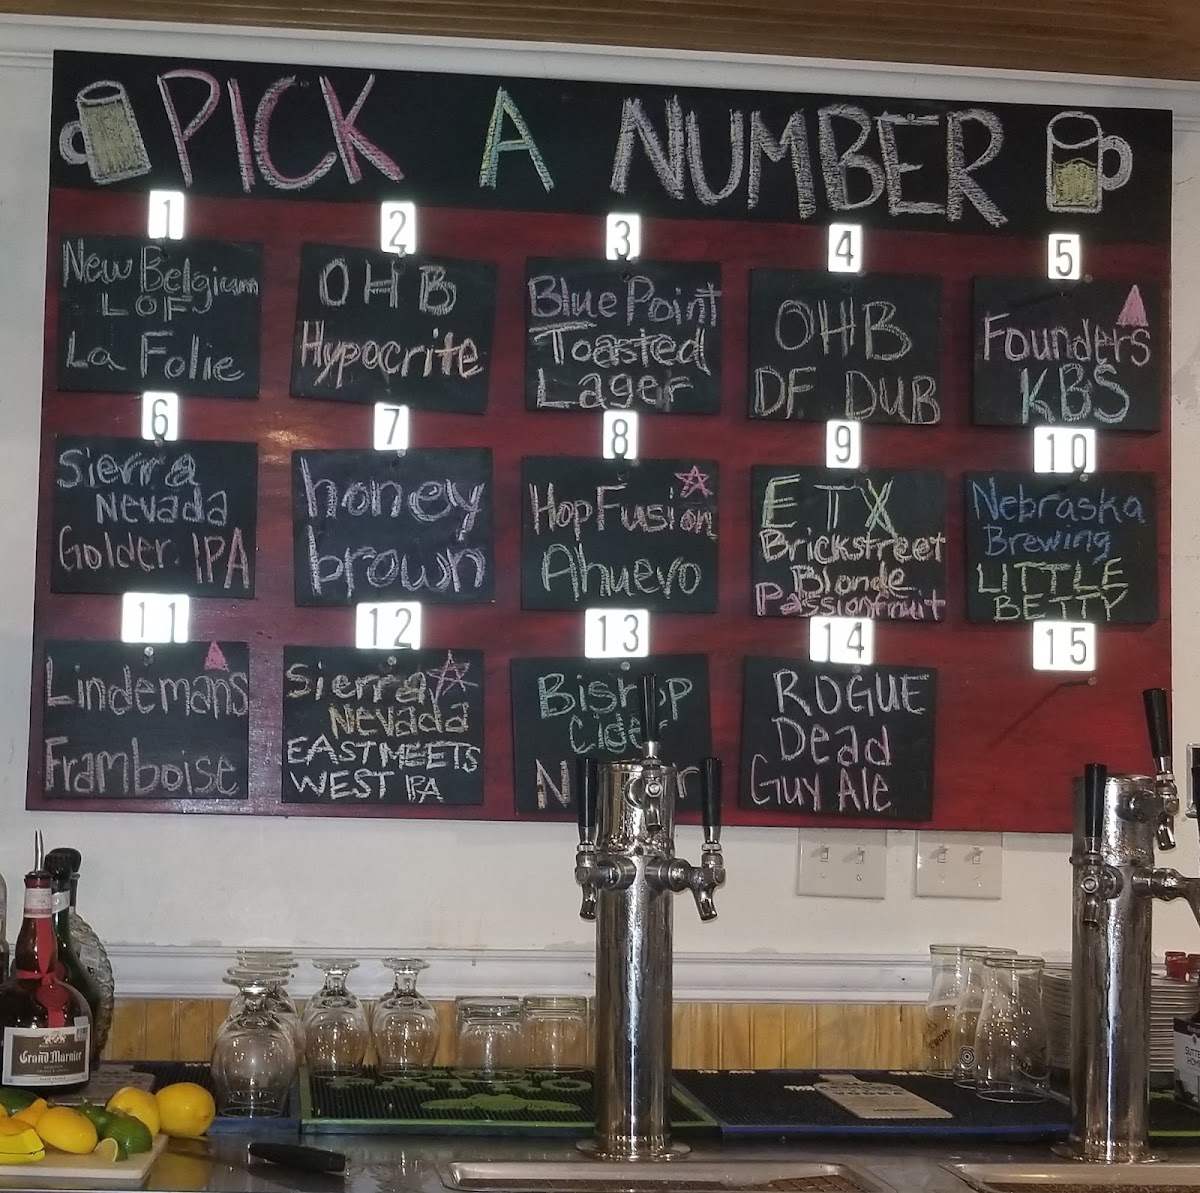 PICK A NUMBER
1
New Belgium
LOF
La Folie
2
OHB
Hypocrite
3
Blue Point
Toasted
Lager
4
OHB
DF DUB
5
Founders
KBS
6
Sierra
Nevada
Golden IPA
7
honey
brown
8
HopFusion
Ahuevo
9
ETX
Brickstreet
Blonde
Passionfruit
10
Nebraska
Brewing
LITTLE
BETTY
11
Lindemans
Framboise
12
Sierra
Nevada
EAST MEETS
WEST IPA
13
Bishop
14
ROGUE
Dead
Guy Ale
15
Grand Marnier